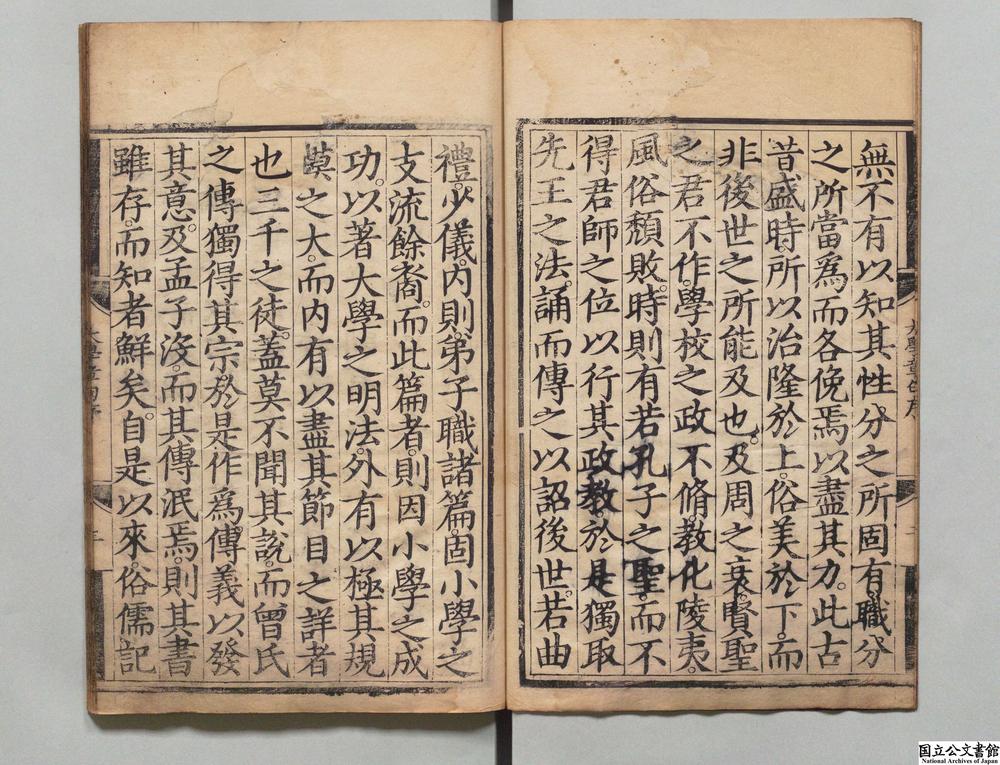 無不有以知其性分之所固有職分
之所當為而各俛焉以盡其力。此古
昔盛時所以治隆於上。俗美於下。而
非後世之所能及也。及周之衰。賢聖
之君不作。學校之政不脩。教化陵夷。
風俗頽敗。時則有若孔子之聖。而不
得君師之位以行其政教。於是獨取
先王之法。誦而傳之以詔後世。若曲
禮。少儀。內則。弟子職諸篇。固小學之
支流餘裔。而此篇者。則因小學之成
功。以著大學之明法。外有以極其規
模之大。而內有以盡其節目之詳者
也三千之徒。蓋莫不聞其說。而曾氏
之傳獨得其宗。於是作為傳義以發
其意。及孟子沒。而其傳泯焉。則其書
雖存。而知者鮮矣。自是以來。俗儒記
大學章句序
大學章句序
国立公文書館
National Archives of Japan